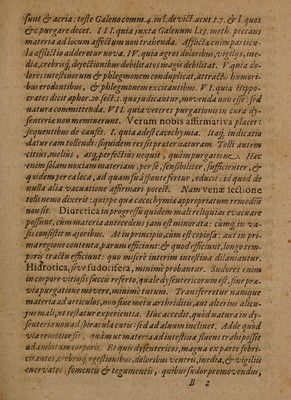 sunt & acria: teste Galeno comm. 4. in l. de vict. acut. t. 7. & I. quos
& c. purgare decet. III. quia juxta Galenum l. 13. meth. peccans
materia ad locum affectum non trahenda. Afflicta enim particu-
la afflictio adderetur nova. IV. quia egros doloribus, vigilijs, ine-
dia, crebrisq; dejectionibus debilitatos magis debilitat. V. quia do-
lores intestinorum & phlegmonem conduplicat, attractu humori-
bus erodentibus, & phlegmonem excitantibus. VI. quia Hippo-
crates dicit aphor. 20. sect. 1. quæ judicantur, movenda non esse: sed
natura committenda. VII. quia veteres purgationis in cura dy-
senteria non meminerunt. Verum nobis affirmativa placet:
sequentibus de causis. I. quia adest cacochymia. Itaq; indicatio
datur eam tollendi. siquidem res sit præter naturam. Tolli autem
citius, melius, atq; perfectius nequit, quam purgatione. Hæc
enim solam noxiam materiam, per se, sensibiliter, sufficienter, &
quidem per ea loca, ad quam suâ sponte fertur, educit: id quod de
nulla alia vacuatione affirmari potest. Nam venæ sectione
tolli nemo dixerit: quippe quæ cacochymia appropriatum remediũ
non sit. Diuretica in progressu quidem mali reliquias evacuare
possunt, cum materia antecedens jam est minorata: cumq; in va-
sis consistit majoribus. At in principio, cum est copiosa: aut in pri-
ma regione contenta, parum efficiunt: & quod efficiunt, longo tem-
poris tractu efficiunt: quo miserè interim intestina dilaniantur.
Hidrotica, sive sudorifera, minimè probantur. Sudores enim
in corpore vitiosis succis referto, quale dysentericorum est, sine præ-
via purgatione movere, minimè tutum. Transferretur namque
materia ad articulos, non sine metu arthritidis, aut alterius alicu-
jus mali, ut testatur experientia. Huc accedit, quòd natura in dy-
senteria non ad spiracula cutis: sed ad aluum inclinet. Adde quòd
via remotior sit, quam ut materia ad intestina fluens transpossit
ad ambitum corporis. Et quis dysentericos, magna ex parte febri-
citantes, crebrisq; egestionibus, doloribus ventris, inedia, & vigiliis
enervatos, fomentis & tegumentis, quibus sudor promovendus,
B 2